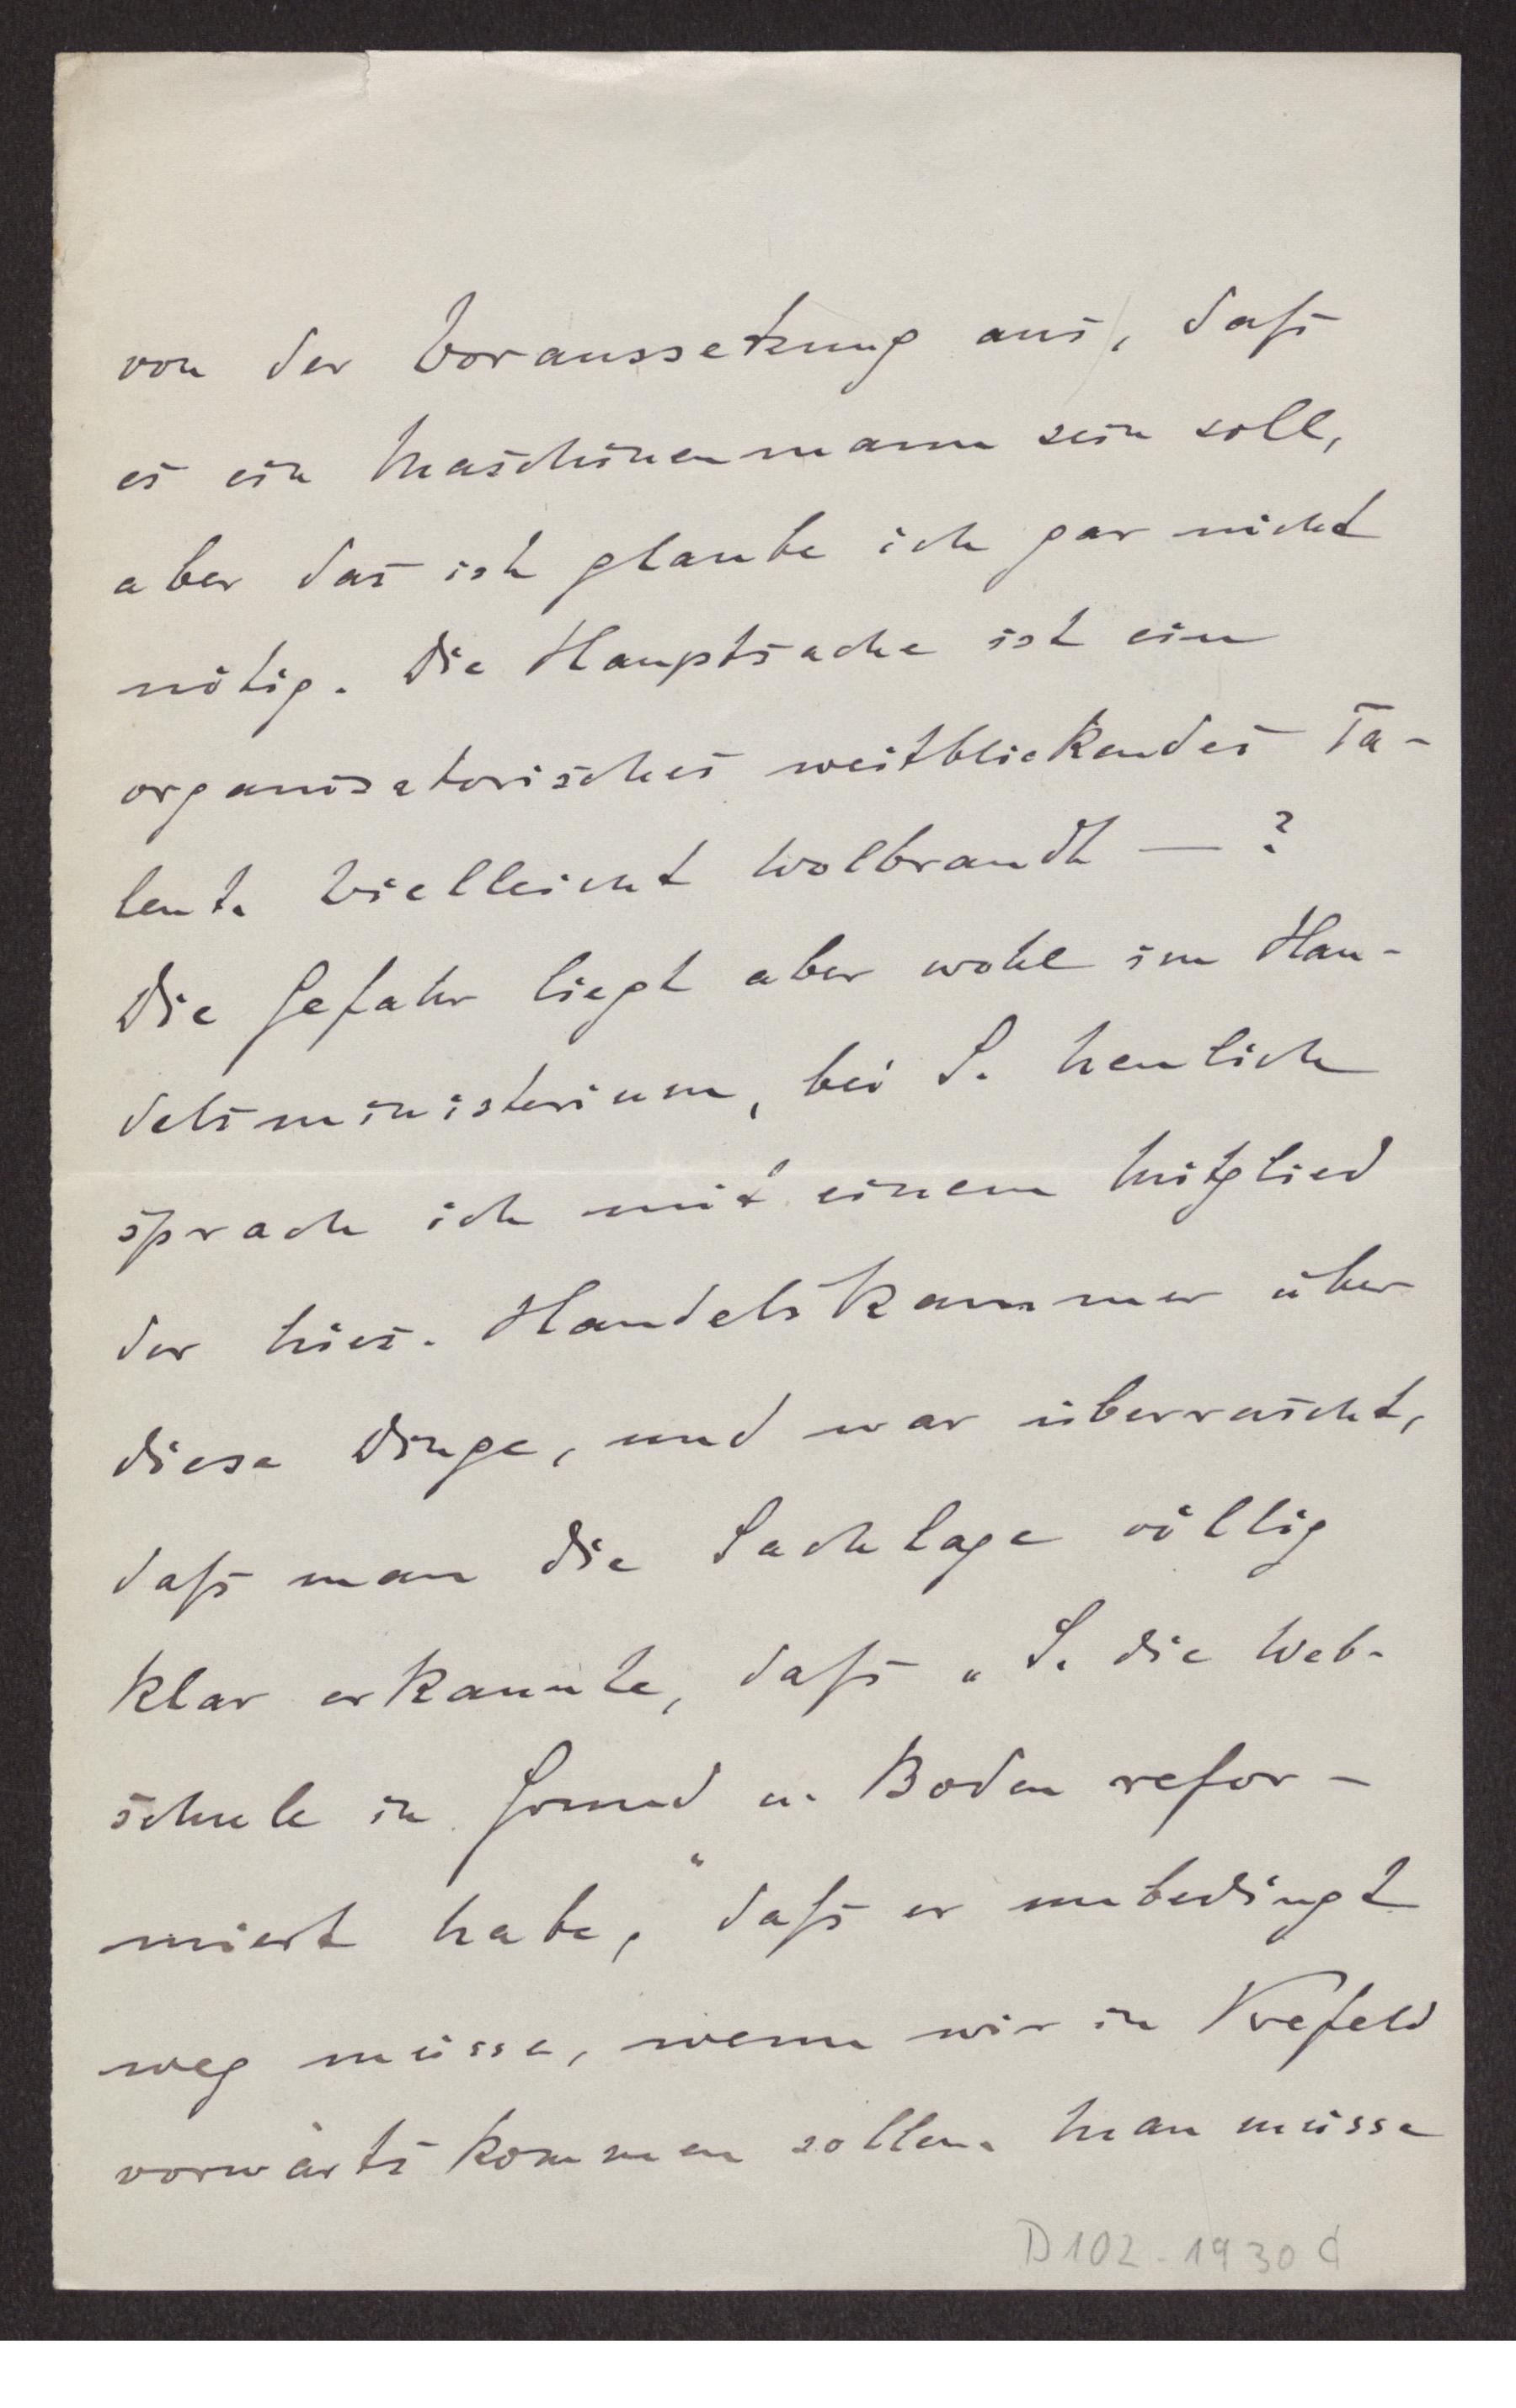 von der Voraussetzung aus, daß
es ein Maschinenmann sein soll,
aber das ist glaube ich gar nicht
nötig. Die Hauptsache ist ein
organisatorisches weitblickendes Ta-
lent. Vielleicht Wolbrandt — ?
Die Gefahr liegt aber wohl im Han-
delsministerium, bei S. Neulich
sprach ich mit einem Mitglied
der hies. Handelskammer über
diese Dinge, und war überrascht,
daß man die Sachlage völlig
klar erkannte, daß „S. die Web-
schule in Grund u. Boden refor-
miert habe,“ daß er unbedingt
weg müsse, wenn wir in Krefeld
vorwärts kommen sollen. Man müsse
D102-1930 d